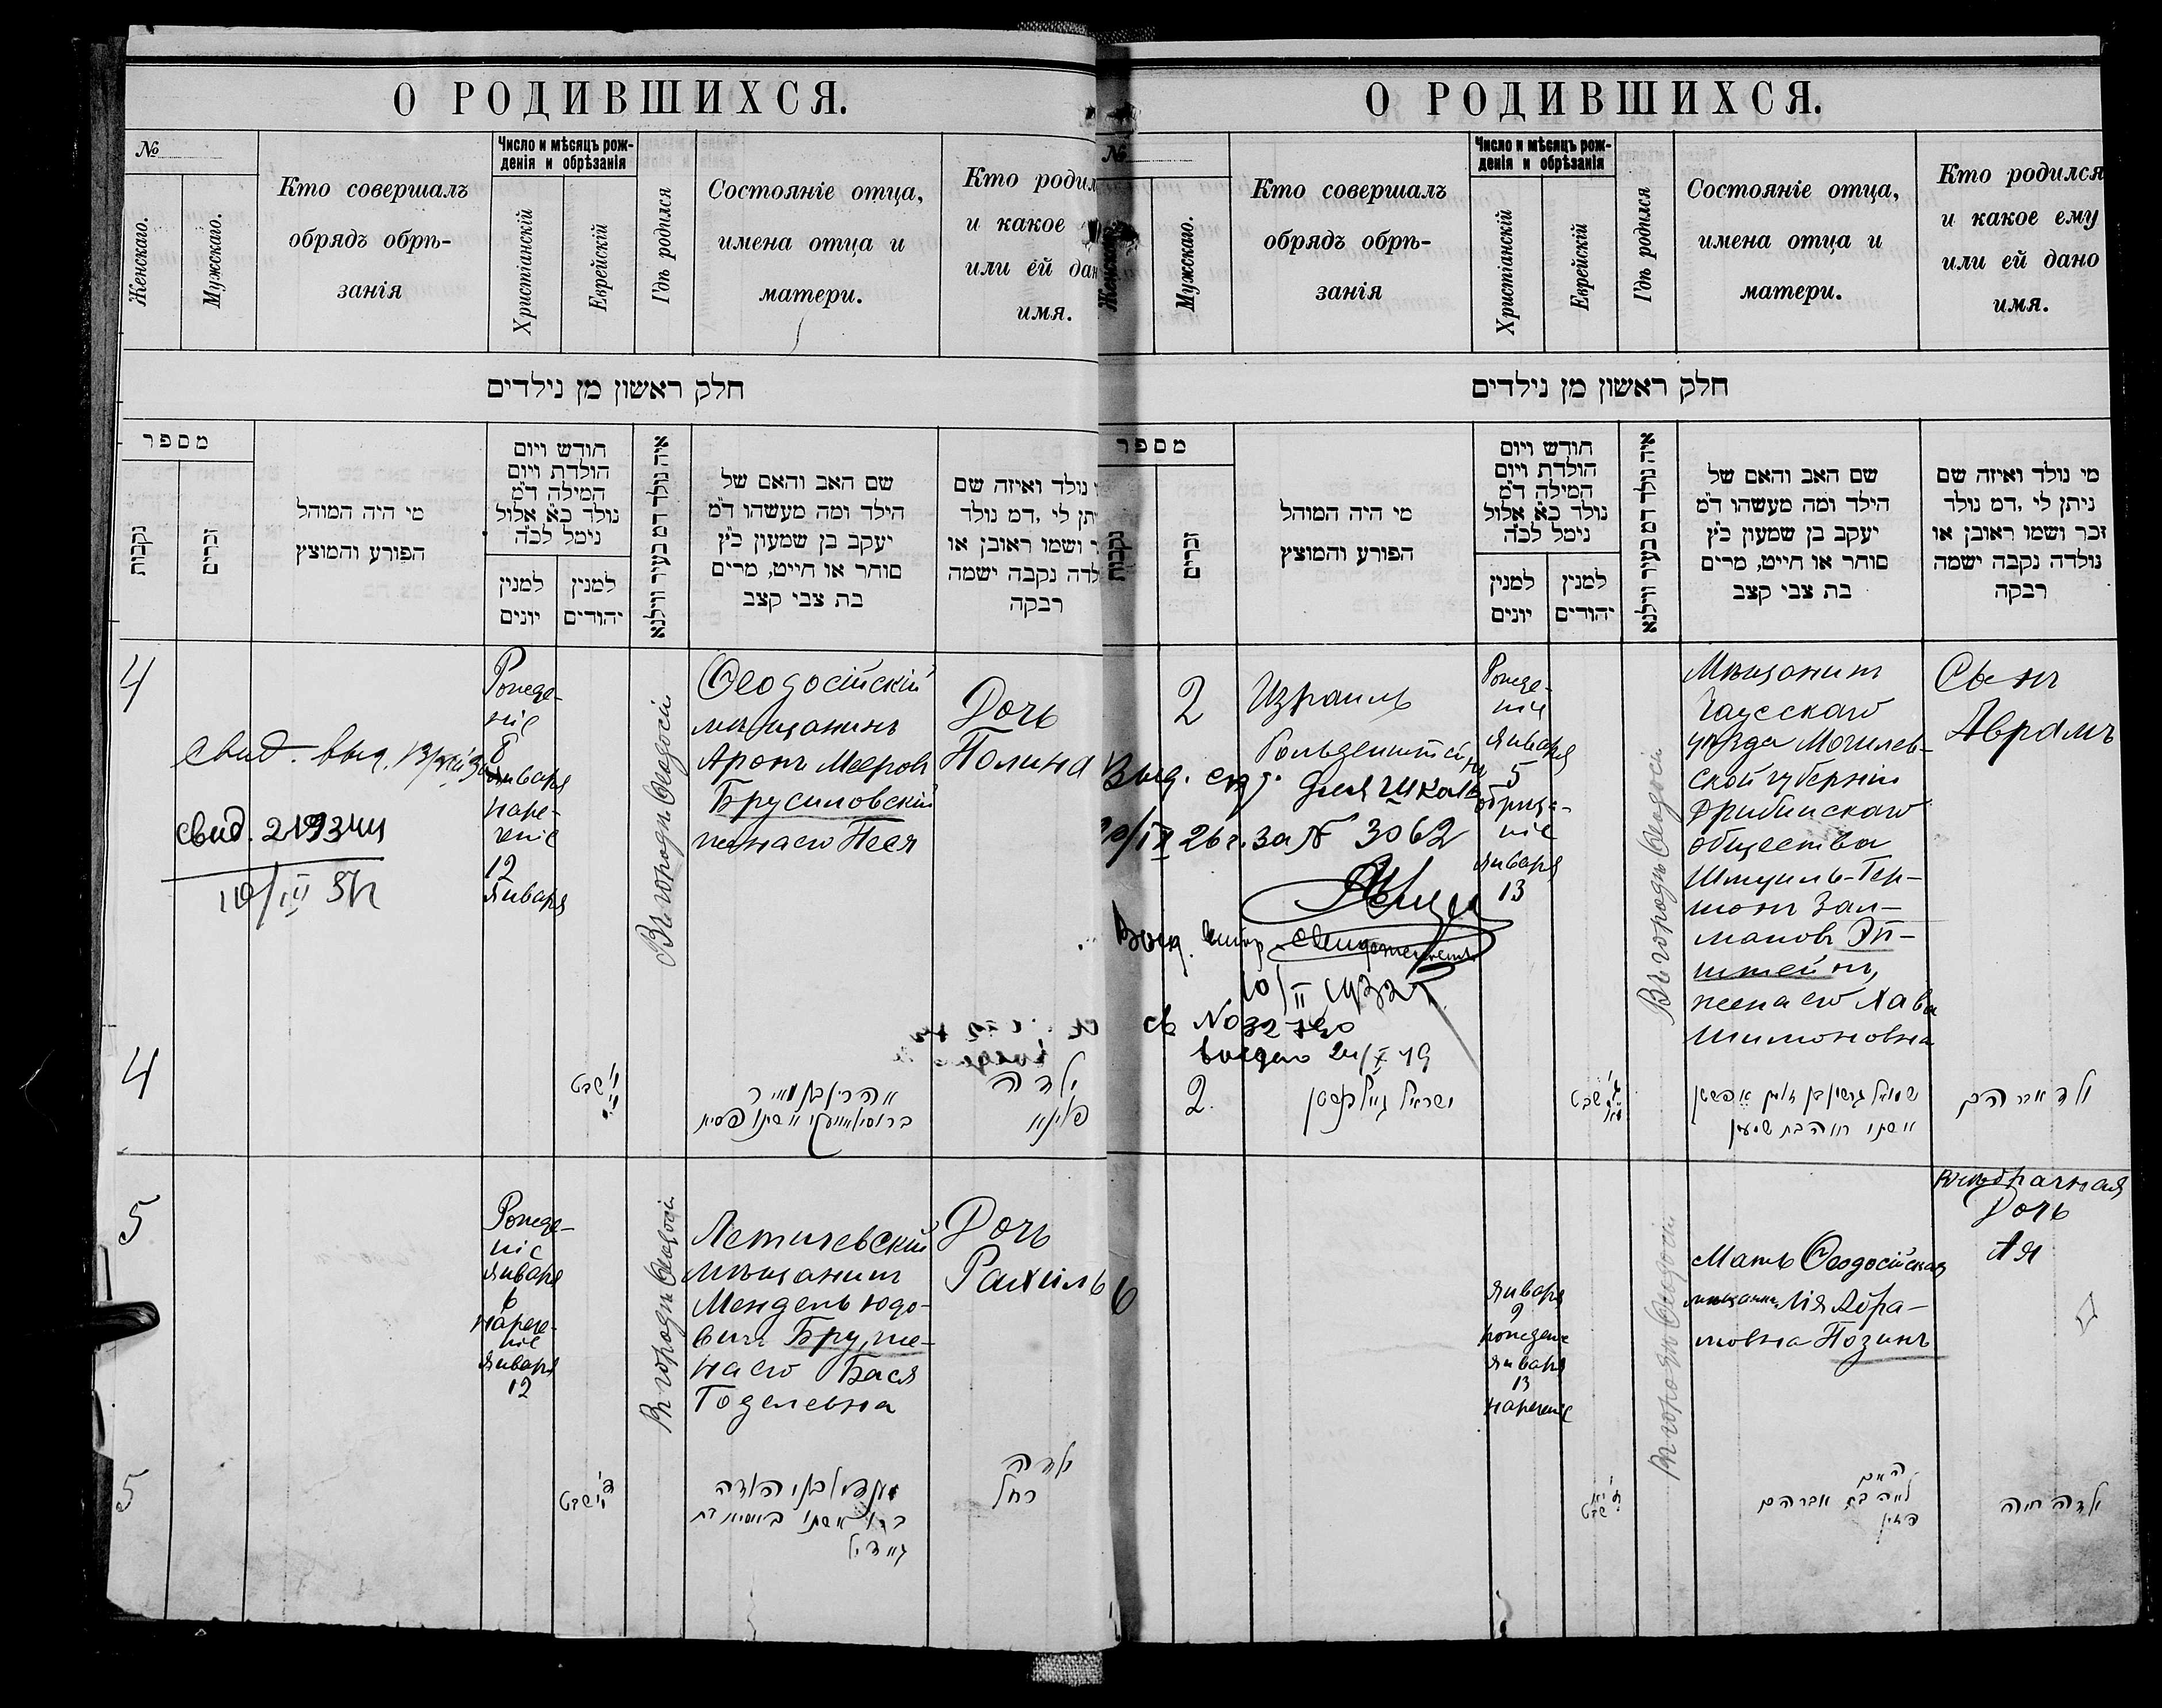 О РОДИВШИХСЯ.
№
Женскаго.
Мужскаго.
Кто совершалъ
обрядъ обрѣ-
занія
Число и мѣсяцъ рож-
денія и обрѣзанія
Христіанскій
Еврейскій
Гдѣ родился
Состояніе отца,
имена отца и
матери.
Кто родил
и какое
или ей дан
имя.
חלק ראשון מן נילדים
מספר
נקבות
זכרים
מי היה המוהל
הפורע והמוצץ
חודש ויום
הולדת ויום
המילה ד״מ
נולד כ״א אלול
נימל לכ״ה
למנין
יונים
למנין
יהודים
איה נולד דמ בעיר ווילנא
שם האב והאם של
הילד ומה מעשהו ד״מ
יעקב בן שמעון כ״ץ
סוחר או חייט, מרים
בת צבי קצב
נולד ואיזה שם
יתן לי, דמ נולד
ושמו ראובן או
לדה נקבה ישמה
רבקה
4
свид. выд.
свид. 219344
Рожде-
ніе
8
Января
наре-
ченіе
12
Января
Въ городѣ Ѳеодосіи
Ѳеодосійскій
мѣщанинъ
Аронъ Мееровъ
Брусиловскій
жена его Песя
Дочь
Полина
4
שבט
אהרן בן מאיר
ילדה
פלינא
5
Рожде-
ніе
Января
6
Нарече-
ніе
Января
12
Въ городѣ Ѳеодосіи
Летичевскій
мѣщанинъ
Мендель Юдо-
вичъ Бру, же-
на его Бася
Годелевна
Дочь
Рахиль
5
שבט
ילדה
רחל
О РОДИВШИХСЯ.
№
Женскаго
Мужскаго.
Кто совершалъ
обрядъ обрѣ-
занія
Число и мѣсяцъ рож-
денія и обрѣзанія
Христіанскій
Еврейскій
Гдѣ родился
Состояніе отца,
имена отца и
матери.
Кто родился
и какое ему
или ей дано
имя.
חלק ראשון מן נילדים
מספר
נקבות
זכרים
מי היה המוהל
הפורע והמוצץ
חודש ויום
הולדת ויום
המילה ד״מ
נולד כ״א אלול
נימל לכ״ה
למנין
יונים
למנין
יהודים
איה נולד דמ בעיר ווילנא
שם האב והאם של
הילד ומה מעשהו ד״מ
יעקב בן שמעון כ״ץ
סוחר או חייט, מרים
בת צבי קצב
מי נולד ואיזה שם
ניתן לי, דמ נולד
זכר ושמו ראובן או
נולדה נקבה ישמה
רבקה
2
Израиль
Гольденштейнъ
Выд. для школы
26 г. за № 3062
Выд.
св №032790
выдано 24/X 19
Рожде-
ніе
Января
5
обрѣза-
ніе
Января
13
Въ городѣ Ѳеодосіи
Мѣщанинъ
Чаусскаго
уѣзда Могилев-
ской губерніи
Дрибинскаго
общества
Шмуиль-Гер-
шонъ Зал-
мановъ Эп-
штейнъ,
жена его Хава
Шимоновна
Сынъ
Абрамъ
2.
ישראל
שבט
שמואל גרשון בן זלמן עפשטין
אשתו חוה בת שמעון
ילד אברהם
6
Января
9
рожденіе
Января
13
нареченіе
Въ городѣ Ѳеодосіи
Мать Ѳеодосійская
мѣщанка Лія Абра-
мовна Позинъ
внѣбрачная
Дочь
שבט
האם
לאה בת אברהם
ילדה חיה